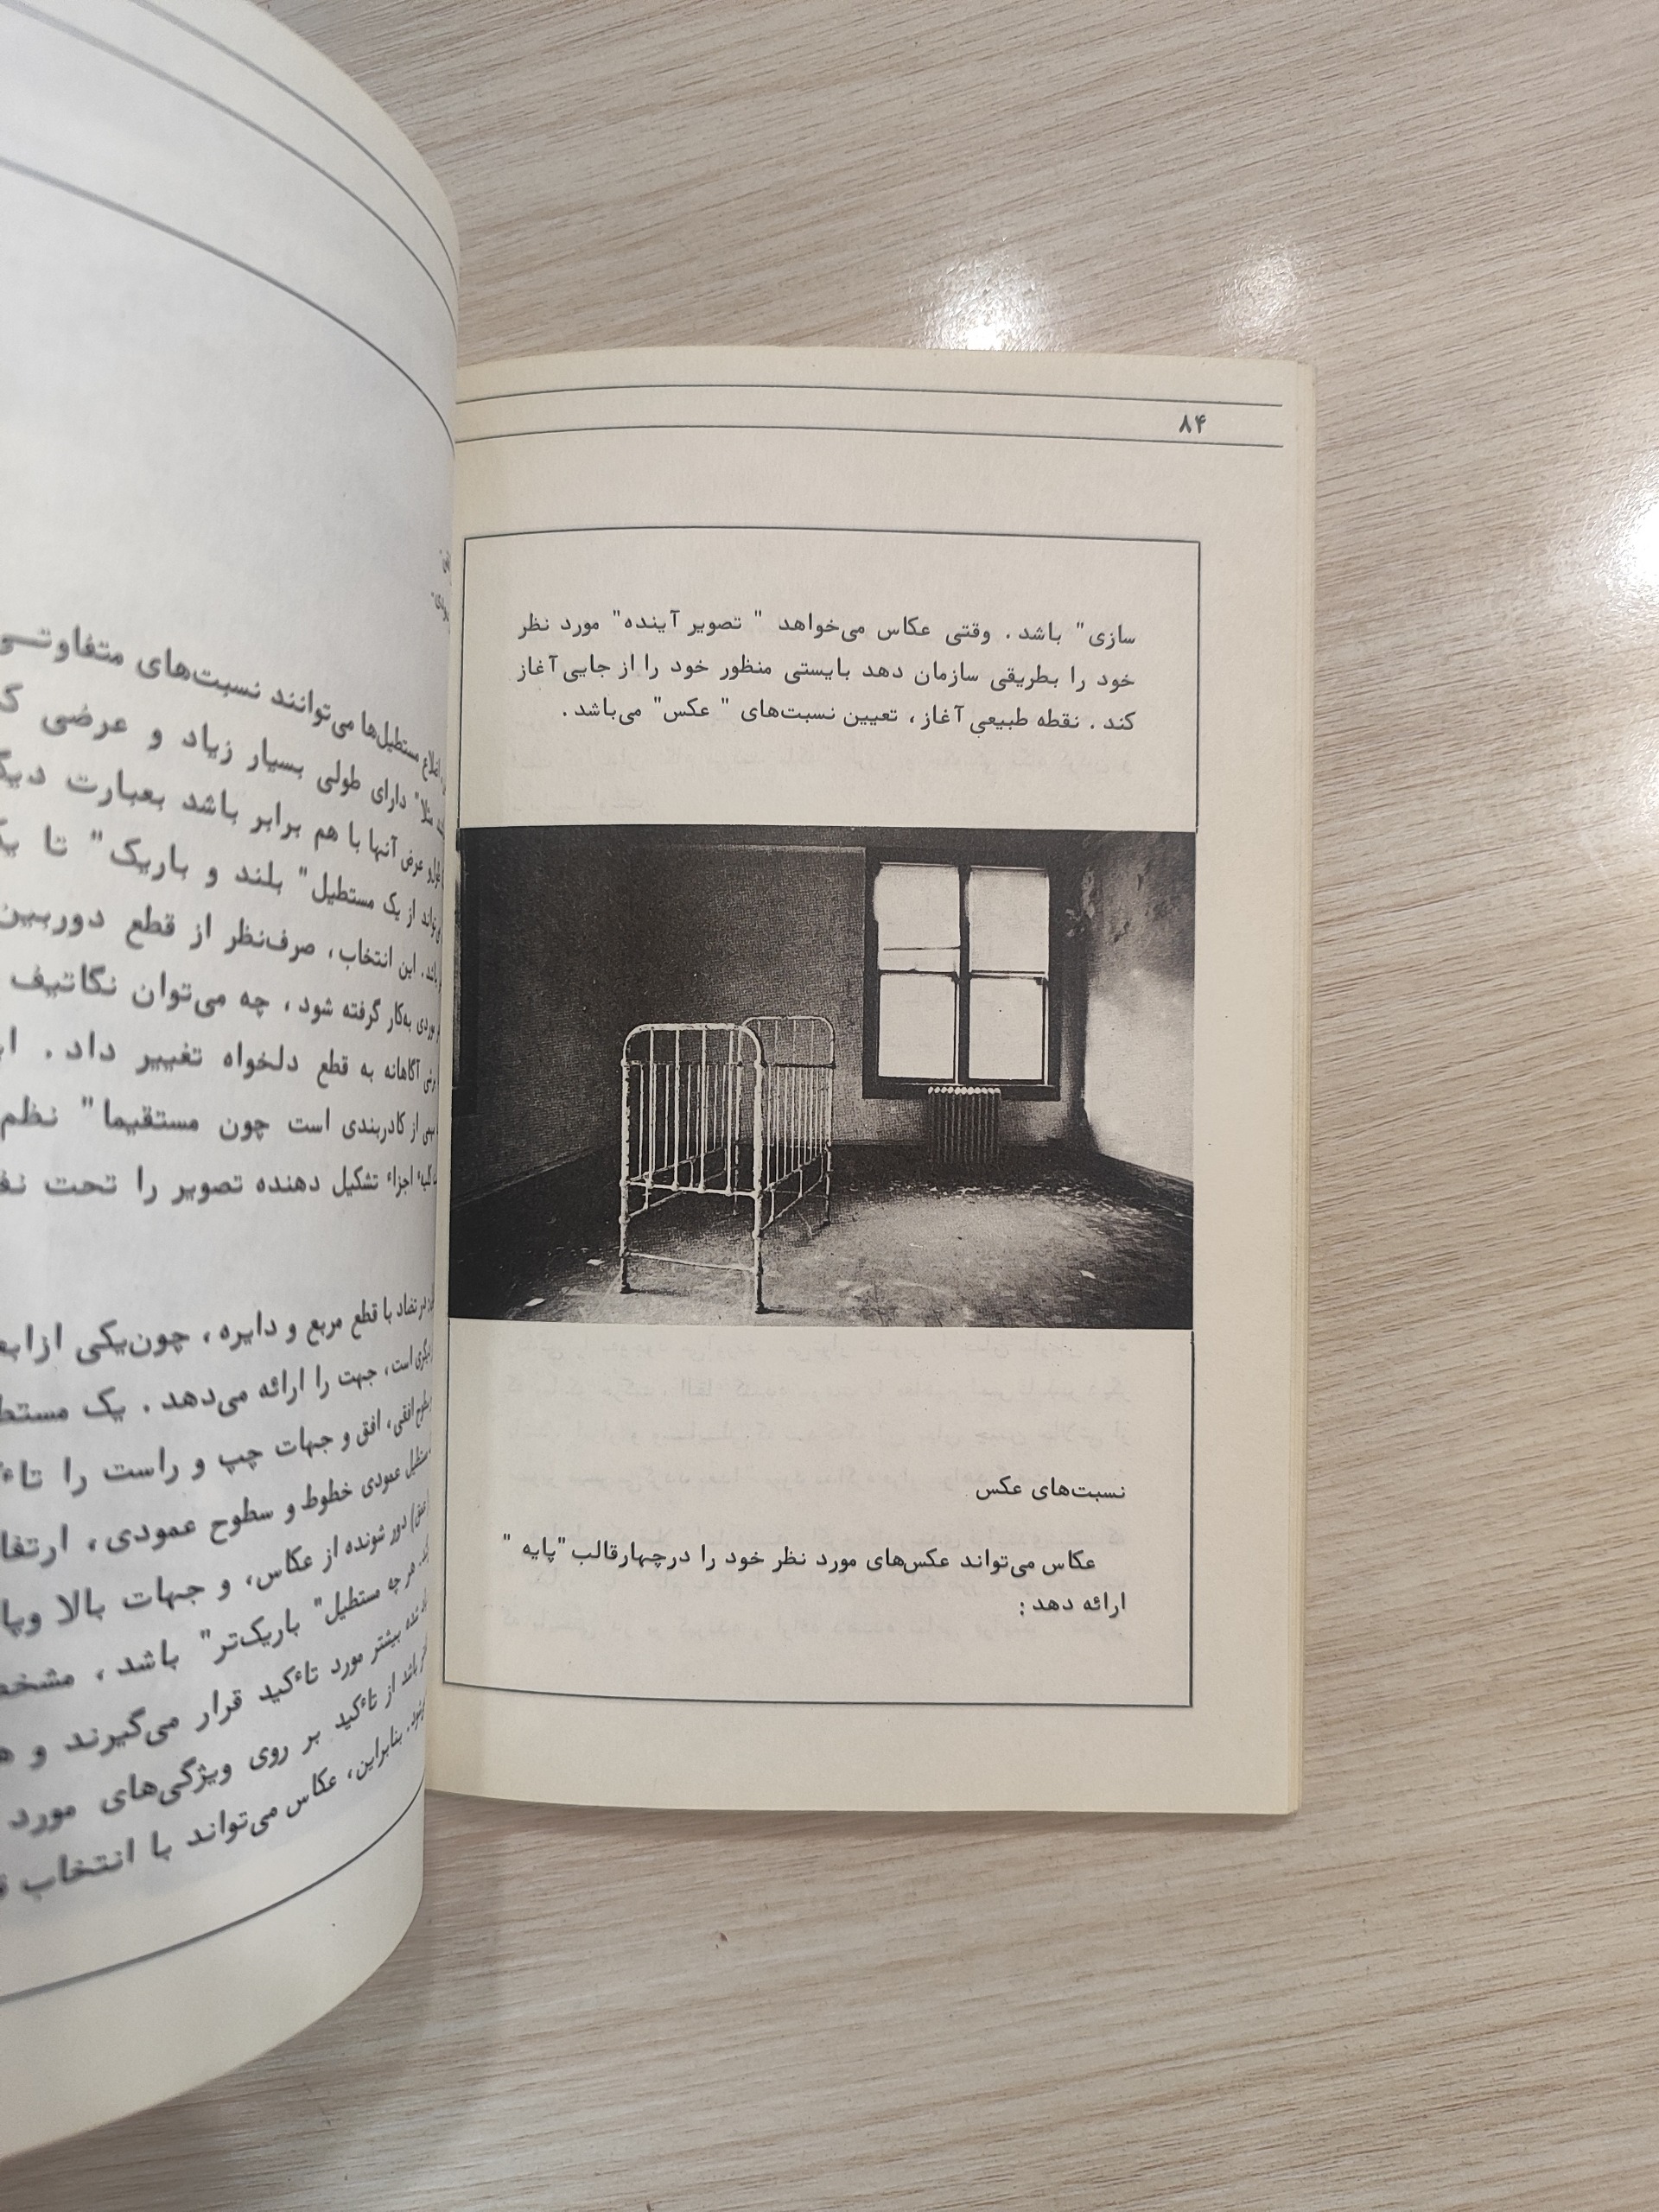 ۸۴
سازی" باشد. وقتی عکاس می‌خواهد " تصویر آینده" مورد نظر
خود را بطریقی سازمان دهد بایستی منظور خود را از جایی آغاز
کند. نقطه طبیعی آغاز، تعیین نسبت‌های " عکس" می‌باشد.
نسبت‌های عکس
عکاس می‌تواند عکس‌های مورد نظر خود را درچهارقالب "پایه "
ارائه دهد:
اضلاع مستطیل‌ها می‌توانند نسبت‌های
مثلا" دارای طولی بسیار زیاد و عرضی
عرض آنها با هم برابر باشد بعبارت
از یک مستطیل" بلند و باریک" تا
باشد. این انتخاب، صرف‌نظر از قطع دوربین
موردی به‌کار گرفته شود، چه می‌توان نگاتیف
آگاهانه به قطع دلخواه تغییر داد.
از کادربندی است چون مستقیما" نظم
اجزاء تشکیل دهنده تصویر را تحت
در تضاد با قطع مربع و دایره، چون‌یکی
دیگری است، جهت را ارائه می‌دهد. یک
سطوح افقی، افق و جهات چپ و راست را
مستطیل عمودی خطوط و سطوح عمودی،
دور شونده از عکاس، و جهات بالا
هر چه مستطیل" باریک‌تر" باشد،
شده بیشتر مورد تاءکید قرار می‌گیرند و
باشد از تاءکید بر روی ویژگی‌های مورد
بنابراین، عکاس می‌تواند با انتخاب